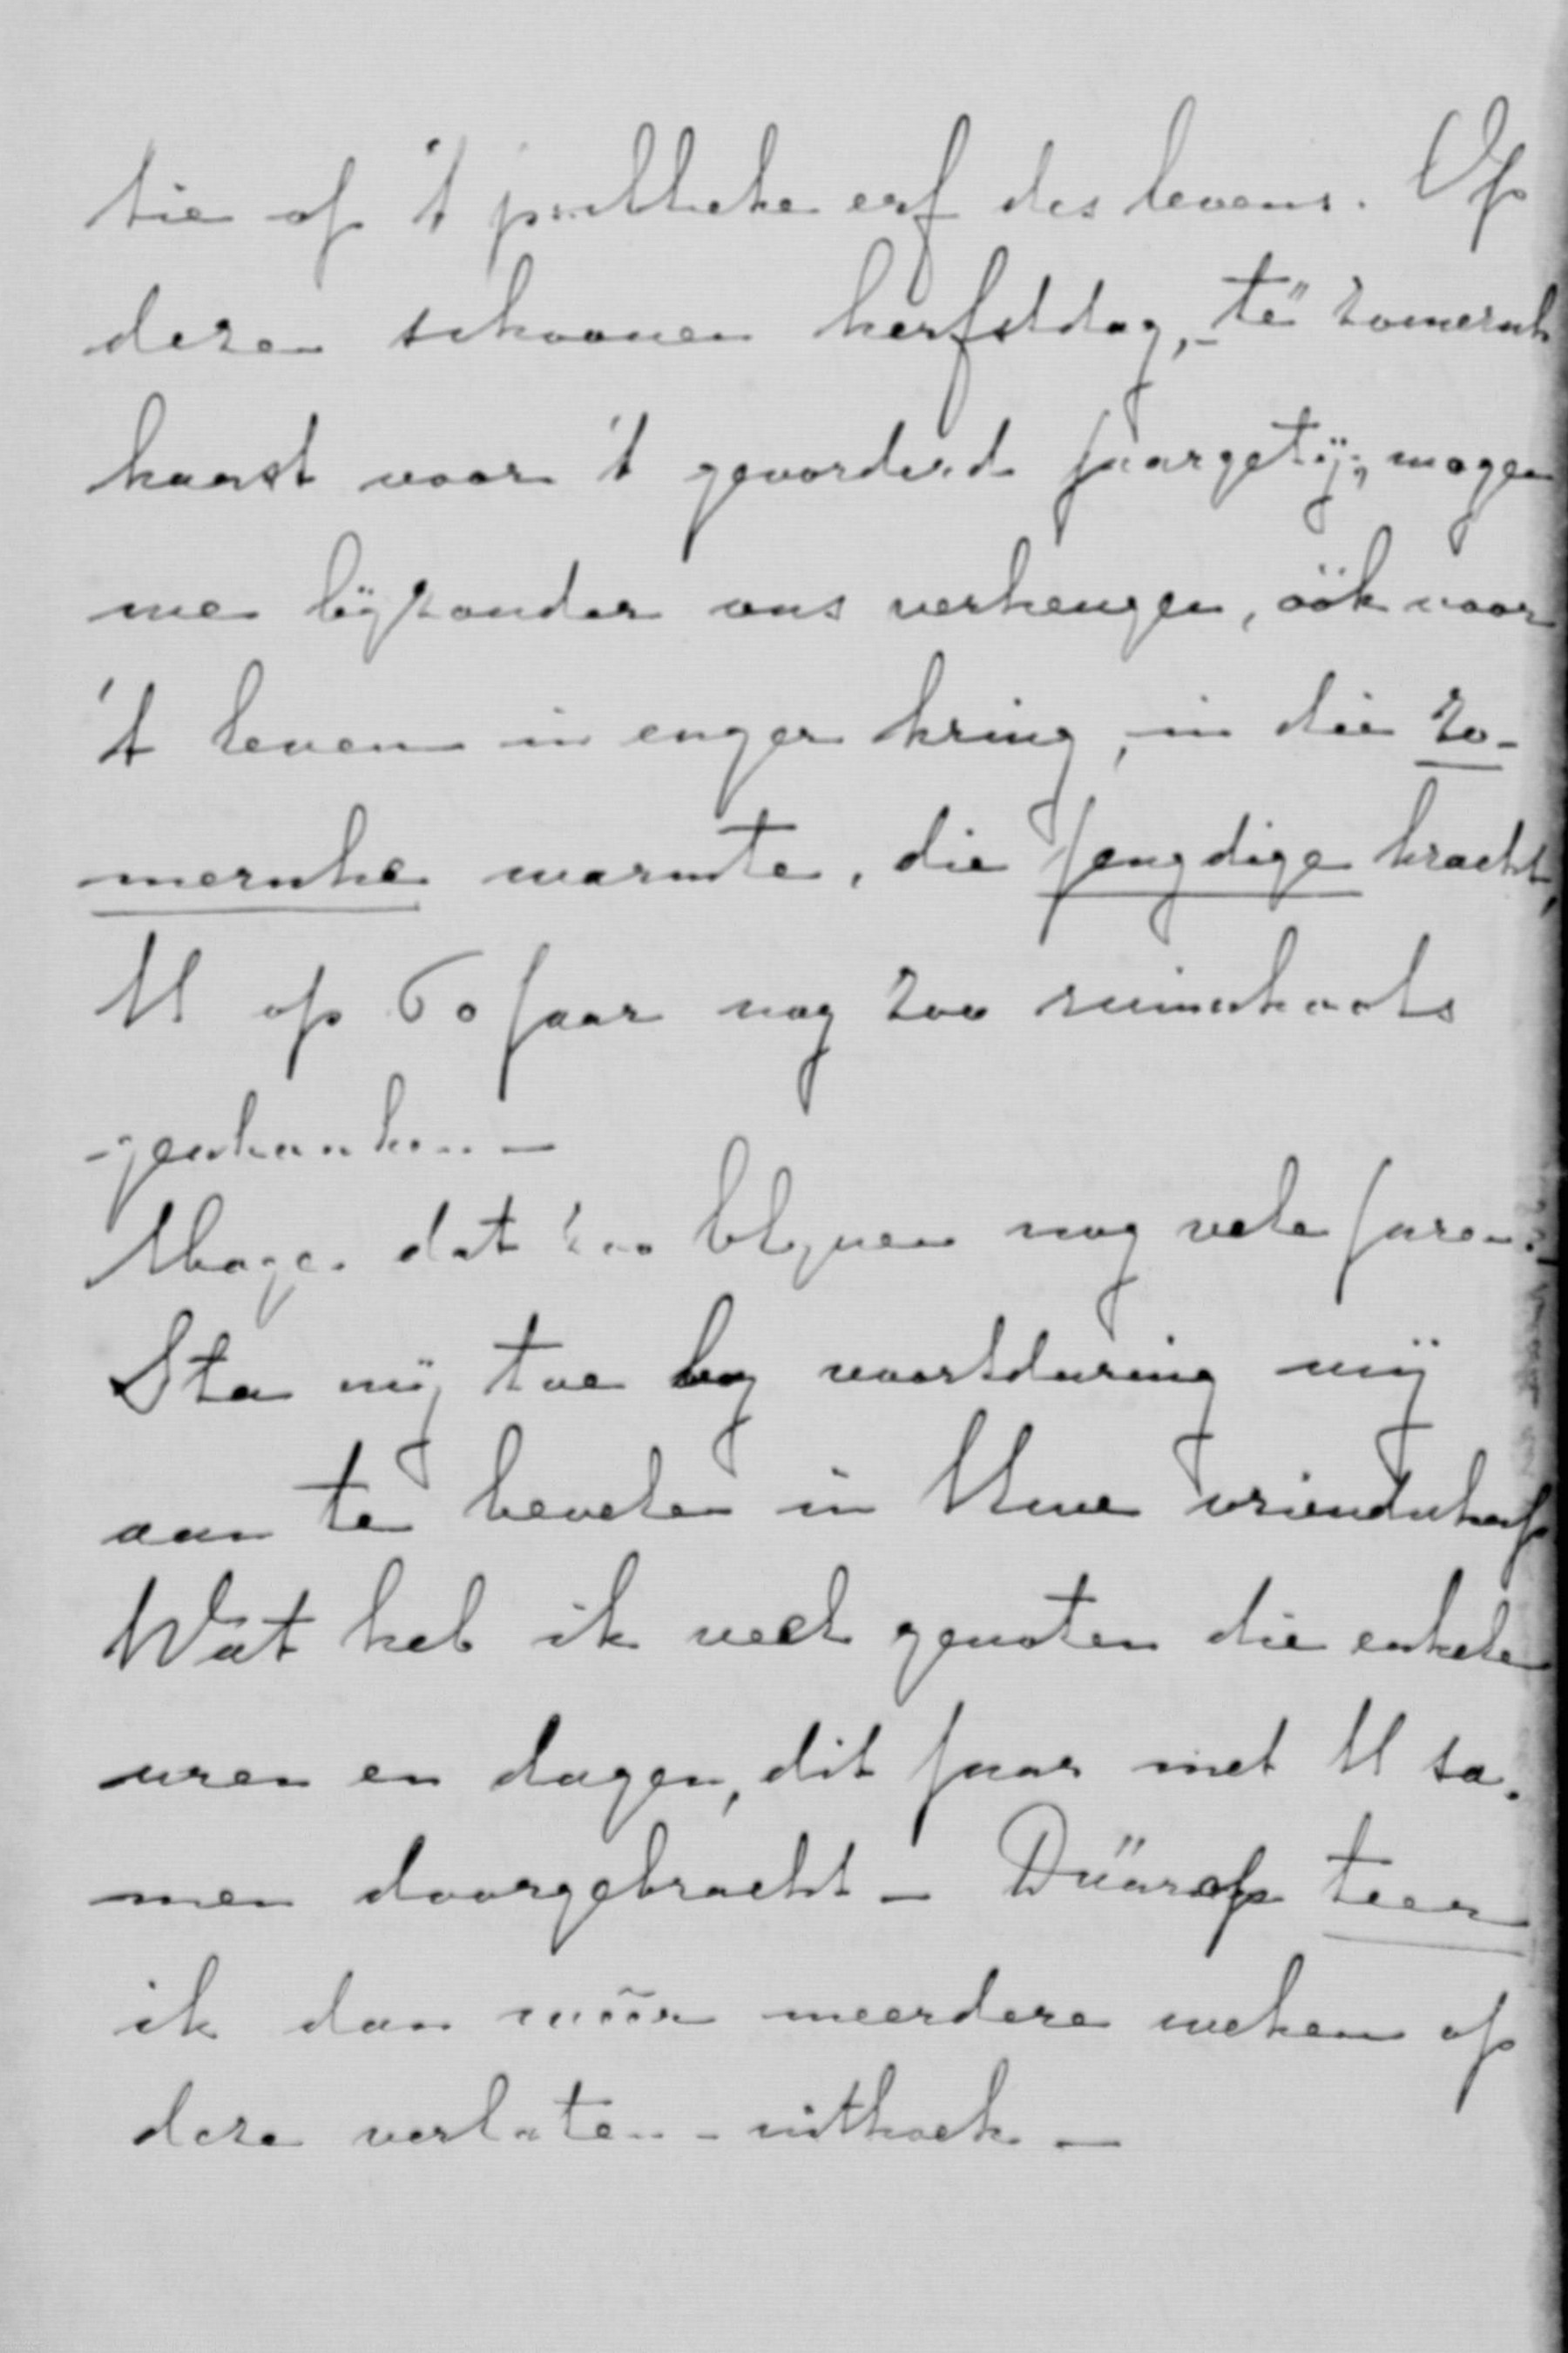 tie op 't publieke erf des levens. Op
dezen schoonen herfstdag, - té zomersch
haast voor 't gevorderd jaargetij; mogen
we bijzonder ons verheugen, óók voor
't leven in enger kring, in die zo-
mersche warmte, die jeugdige kracht,
U op 60 jaar nog zoo ruimschoots
geschonken. -
Moge dat zoo blijven nog vele jaren.
Sta mij toe bij voortduring mij
aan te bevelen in Uwe vriendschap
Wat heb ik veel genoten die enkele
uren en dagen, dit jaar met U sa-
men doorgebracht - Dáárop teer
ik dan wéér meerdere weken op
deze verlaten uithoek -